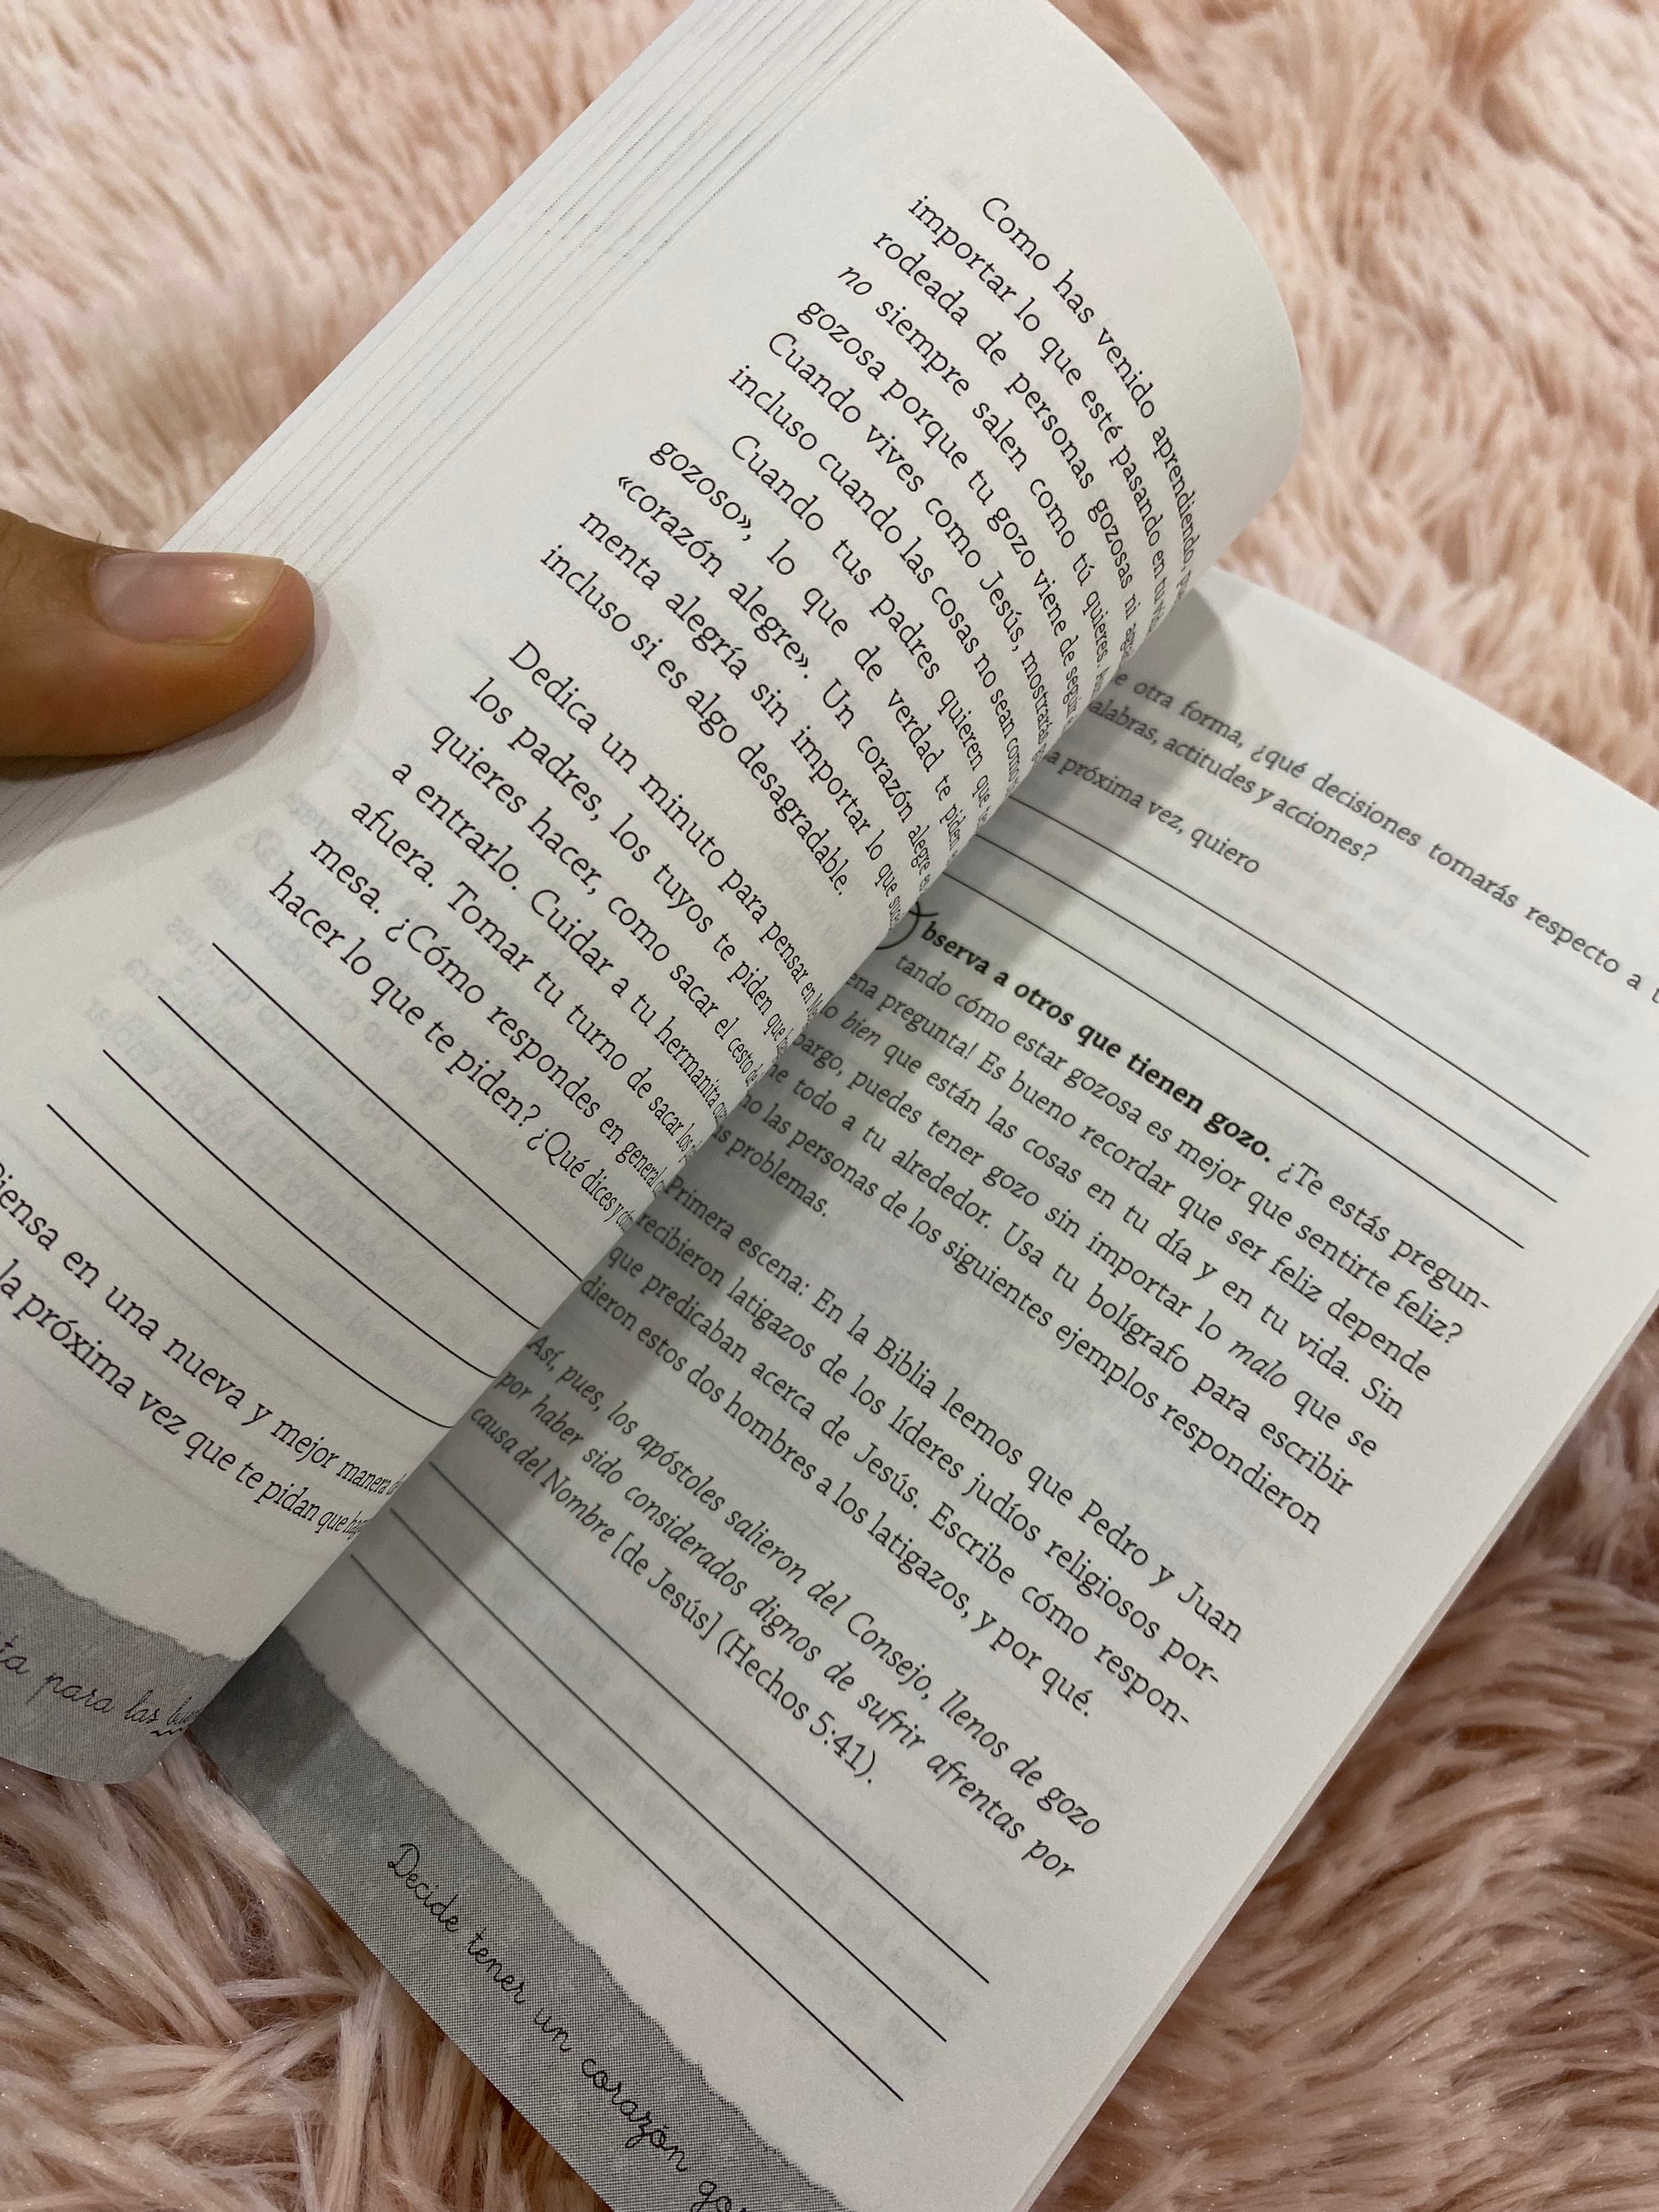 Como has venido aprendiendo,
importar lo que esté pasando en tu
rodeada de personas gozosas ni
no siempre salen como tú quieres.
gozosa porque tu gozo viene de
Cuando vives como Jesús, mostrarás
incluso cuando las cosas no sean como
Cuando tus padres quieren que
gozoso», lo que de verdad te piden
«corazón alegre». Un corazón alegre
menta alegría sin importar lo que
incluso si es algo desagradable.
Dedica un minuto para pensar en
los padres, los tuyos te piden que
quieres hacer, como sacar el cesto de
a entrarlo. Cuidar a tu hermanita
afuera. Tomar tu turno de sacar los
mesa. ¿Cómo respondes en general
hacer lo que te piden? ¿Qué dices y
Piensa en una nueva y mejor manera
la próxima vez que te pidan que
para las
e otra forma, ¿qué decisiones tomarás respecto a
alabras, actitudes y acciones?
a próxima vez, quiero
bserva a otros que tienen gozo. ¿Te estás pregun-
tando cómo estar gozosa es mejor que sentirte feliz?
ena pregunta! Es bueno recordar que ser feliz depende
lo bien que están las cosas en tu día y en tu vida. Sin
bargo, puedes tener gozo sin importar lo malo que se
ne todo a tu alrededor. Usa tu bolígrafo para escribir
no las personas de los siguientes ejemplos respondieron
us problemas.
Primera escena: En la Biblia leemos que Pedro y Juan
recibieron latigazos de los líderes judíos religiosos por-
que predicaban acerca de Jesús. Escribe cómo respon-
dieron estos dos hombres a los latigazos, y por qué.
Así, pues, los apóstoles salieron del Consejo, llenos de gozo
por haber sido considerados dignos de sufrir afrentas por
causa del Nombre [de Jesús] (Hechos 5:41).
Decide tener un corazón